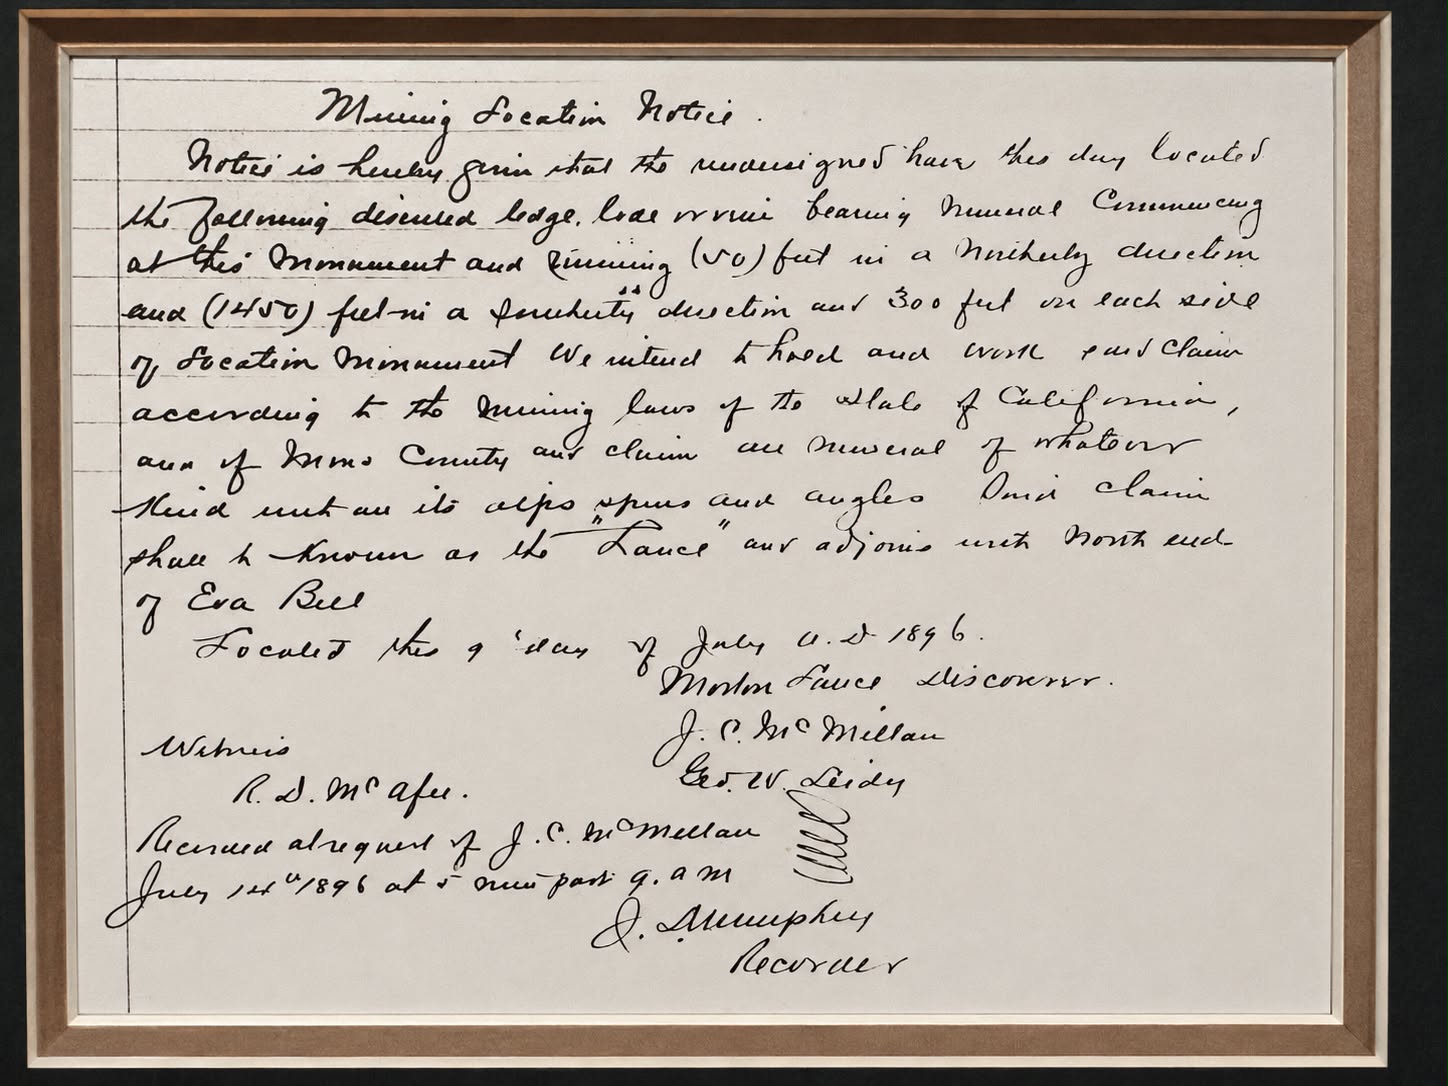 Mining Location Notice.
Notice is hereby given that the undersigned have this day located
the following described ledge, lode or vein bearing mineral Commencing
at this Monument and running (50) feet in a Northerly direction
and (1450) feet in a Southerly direction and 300 feet on each side
of Location Monument We intend to hold and work said claim
according to the mining laws of the State of California,
and of Mono County and claim all mineral of whatever
Kind with all its dips spurs and angles Said claim
shall be Known as the "Lance" and adjoins with North end
of Eva Bell
Located this 9 day of July A.D 1896.
Morton Lance Discoverer.
J. C. McMillan
Witness
Geo. W. Leidy
R. D. McAfee.
Recorded at request of J. C. McMillan
July 14th 1896 at 5 min past 9. am
J. Murphey
Recorder